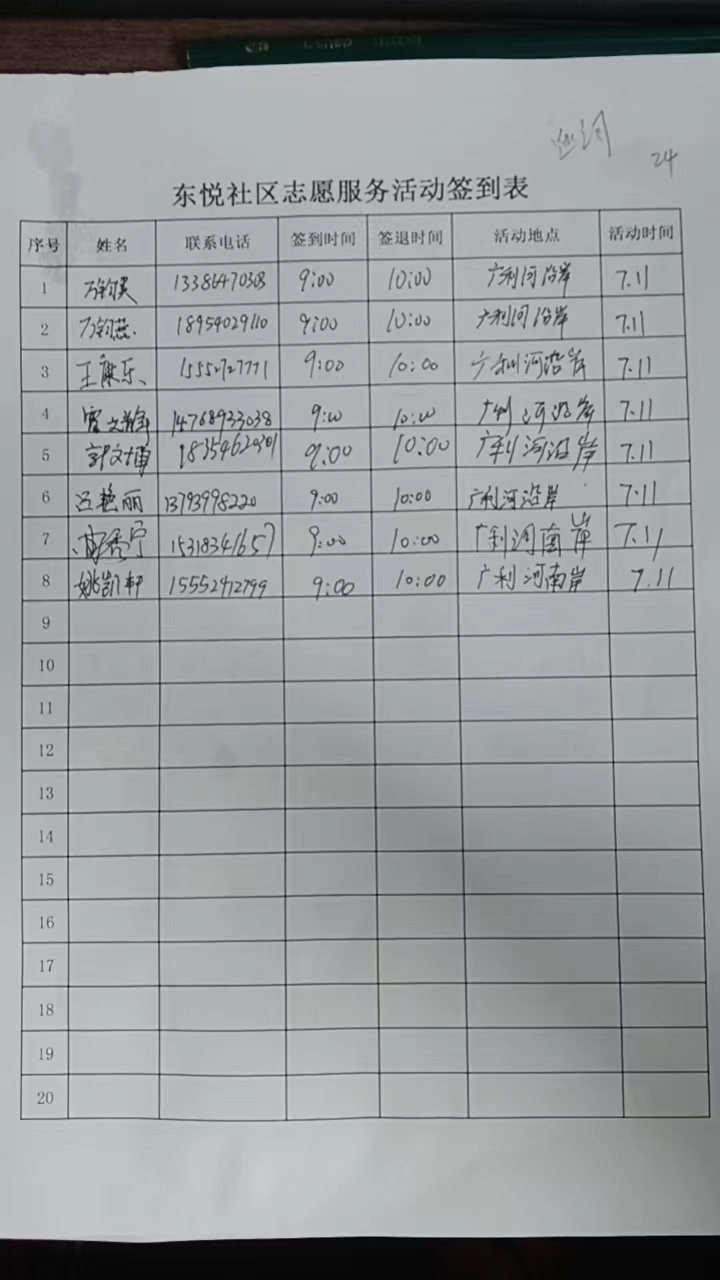 巡河
24
东悦社区志愿服务活动签到表
序号 姓名 联系电话 签到时间 签退时间 活动地点 活动时间
1 13386470308 9:00 10:00 广利河沿岸 7.11
2 18954029110 9:00 10:00 广利河沿岸 7.11
3 王康乐 15552727771 9:00 10:00 广利河沿岸 7.11
4 14768933038 9:00 10:00 广利河沿岸 7.11
5 郭文博 18354620301 9:00 10:00 广利河沿岸 7.11
6 吕艳丽 13793998220 9:00 10:00 广利河沿岸 7.11
7 15318341657 9:00 10:00 广利河南岸 7.11
8 姚凯轩 15552472799 9:00 10:00 广利河南岸 7.11
9
10
11
12
13
14
15
16
17
18
19
20